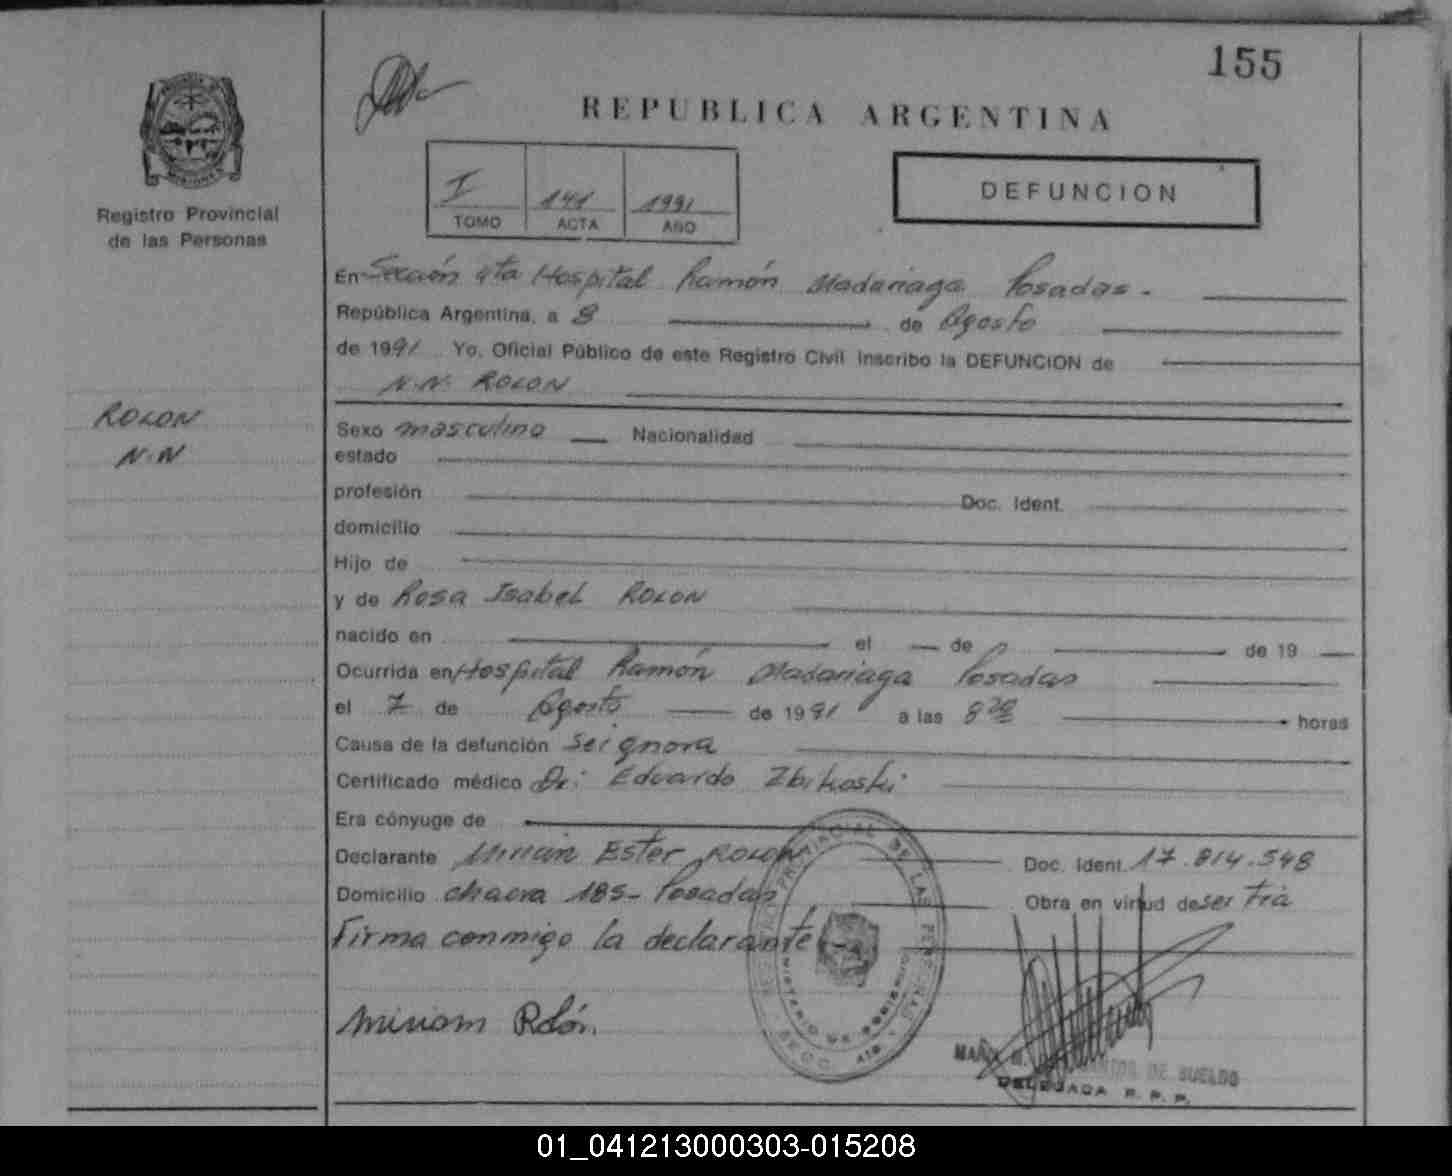 155
REPUBLICA ARGENTINA
Registro Provincial
de las Personas
I 141 1991
TOMO ACTA AÑO
DEFUNCION
En Sección 4ta Hospital Ramón Madariaga Posadas.
República Argentina, a 8 de Agosto
de 1991 Yo, Oficial Público de este Registro Civil inscribo la DEFUNCION de
N.N. ROLON
ROLON
N.N
Sexo masculino Nacionalidad
estado
profesión Doc. Ident.
domicilio
Hijo de
y de Rosa Isabel ROLON
nacido en el de de 19
Ocurrida en Hospital Ramón Madariaga Posadas
el 7 de Agosto de 1991 a las 8 horas
Causa de la defunción se ignora
Certificado médico Dr: Eduardo Zbikoski
Era cónyuge de
Declarante Mirian Ester ROLON Doc. Ident. 17.814.548
Domicilio chacra 185- Posadas Obra en virtud de ser Tia
Firma conmigo la declarante
Miriam Rolón.
REGISTRO PROVINCIAL DE LAS PERSONAS
MINISTERIO DE GOBIERNO
SECC. 4ta
DE SUELDO
DELEGADA R. P. P.
01_041213000303-015208